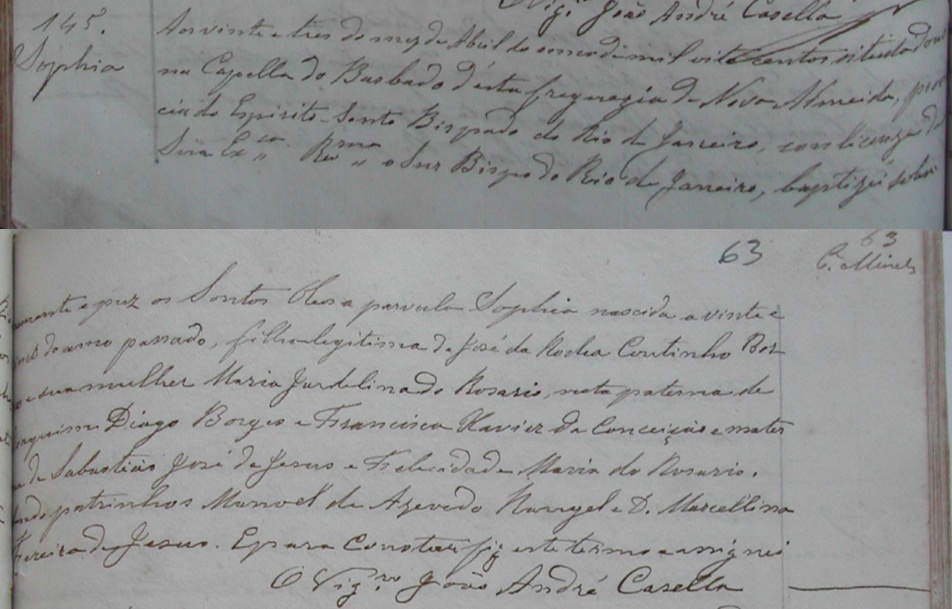 Vigº João André Casella
145.
Sophia
Aos vinte e tres do mez de Abril do anno de mil oito centos oitenta
na Capella do Barbado d'esta freguezia de Nova Almeida, pro
cia do Espirito-Santo Bispado do Rio de Janeiro, com licença de
Sua Exᶜⁱᵃ Rᵐᵃ o Snr Bispo do Rio de Janeiro, baptizei solem
63
63
C. Mines
mente e puz os Santos Oleos a parvula Sophia nascida a vinte e
do anno passado, filha legitima de José da Rocha Coutinho Bor
e sua mulher Maria Jardelina do Rosario, neta paterna de
Diogo Borges e Francisca Xavier da Conceição e mater
de Sabastião José de Jesus e Felecidade Maria do Rosario.
padrinhos Manoel de Azevedo Rangel e D. Marcellina
Pereira de Jesus. E para constar fiz este termo e assignei
O Vigʳᵒ João André Casella